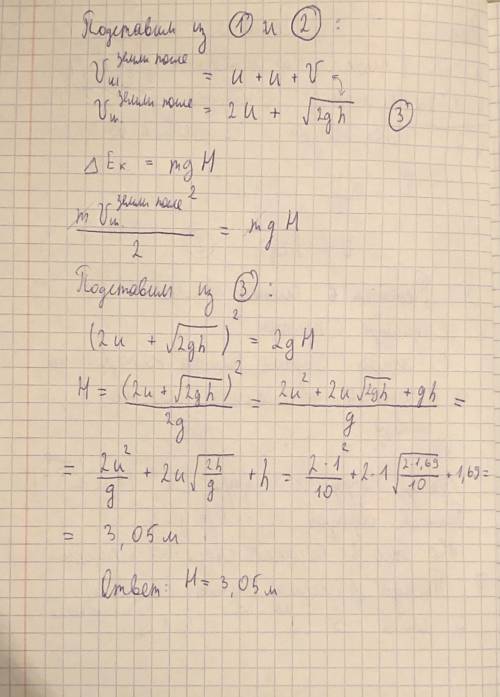 Подставим из ① и ② :
Vш. земли после = u + u + V
Vш. земли после = 2u + √2gh ③
ΔEк = mgH
m Vш. земли после ² / 2 = mgH
Подставим из ③ :
(2u + √2gh)² = 2gH
H = (2u + √2gh)² / 2g = (2u² + 2u√2gh + gh) / g =
= 2u²/g + 2u√(2h/g) + h = 2·1²/10 + 2·1√(2·1,69/10) + 1,69 =
= 3,05 м
Ответ: H = 3,05 м